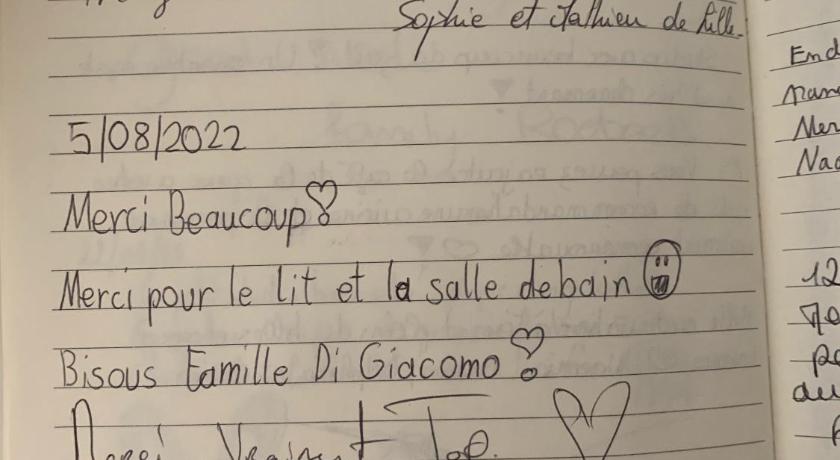 Sophie et Mathieu de Lille.
5/08/2022
Merci Beaucoup
Merci pour le lit et la salle de bain
Bisous Famille Di Giacomo
Merci Vraiment Top.
End
Mer
12
du